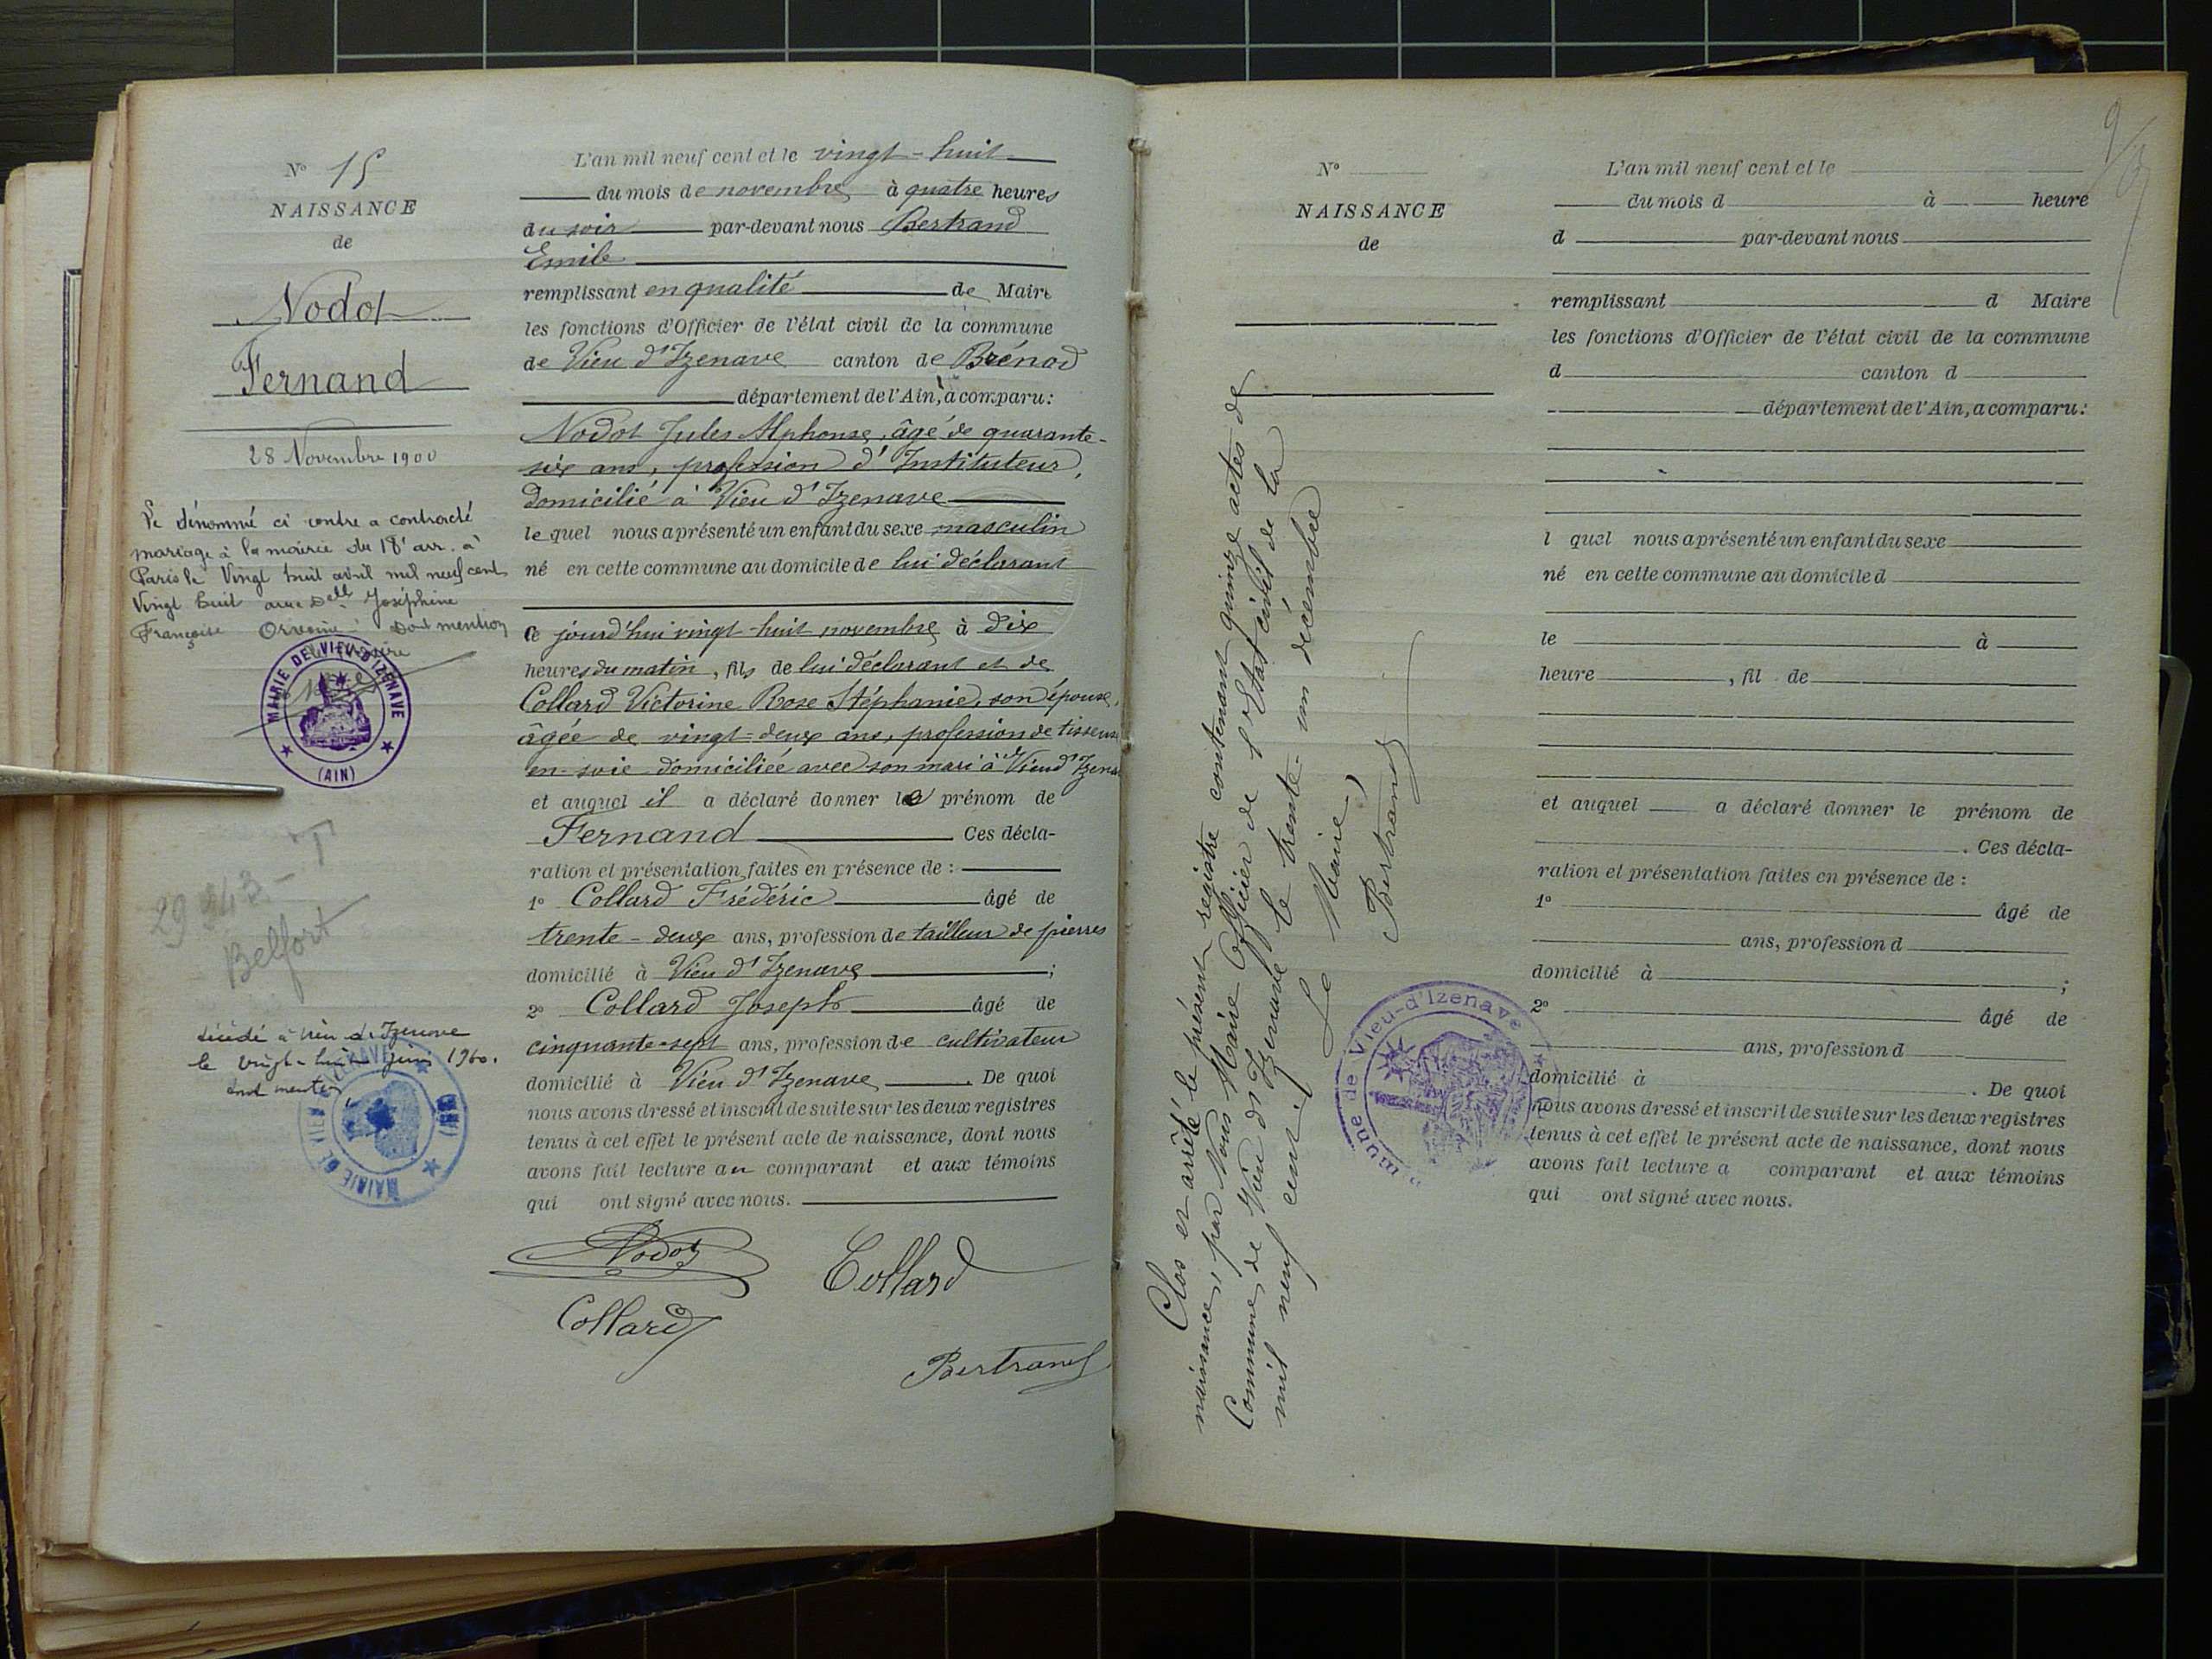 N° 15
NAISSANCE
de
Nodot
Fernand
28 Novembre 1900
Le dénommé ci contre a contracté
mariage à la mairie du 18e arr. à
Paris le Vingt huit avril mil neuf cent
Vingt huit avec Delle Joséphine
Françoise Dont mention
Le Maire
MAIRIE DE VIEU-D'IZENAVE
(AIN)
Belfort
décédé à Vieu d'Izenave
le vingt-huit juin 1960.
dont mention
MAIRIE DE VIEU D'IZENAVE
(AIN)
L'an mil neuf cent et le vingt-huit
du mois de novembre à quatre heures
du soir par-devant nous Bertrand
Emile
remplissant en qualité de Maire
les fonctions d'Officier de l'état civil de la commune
de Vieu d'Izenave canton de Brénod
département de l'Ain, a comparu:
Nodot Jules Alphonse, âgé de quarante-
six ans, profession d'Instituteur,
domicilié à Vieu d'Izenave
lequel nous a présenté un enfant du sexe masculin
né en cette commune au domicile de lui déclarant
Ce jourd'hui vingt-huit novembre à dix
heures du matin, fils de lui déclarant et de
Collard Victorine Rose Stéphanie, son épouse,
âgée de vingt-deux ans, profession de tisseuse
en soie domiciliée avec son mari à Vieu d'Izenave
et auquel il a déclaré donner le prénom de
Fernand Ces décla-
ration et présentation faites en présence de :
1° Collard Frédéric âgé de
trente-deux ans, profession de tailleur de pierres
domicilié à Vieu d'Izenave ;
2° Collard Joseph âgé de
cinquante-sept ans, profession de cultivateur
domicilié à Vieu d'Izenave . De quoi
nous avons dressé et inscrit de suite sur les deux registres
tenus à cet effet le présent acte de naissance, dont nous
avons fait lecture au comparant et aux témoins
qui ont signé avec nous.
Nodot
Collard
Collard
Bertrand
Clos et arrêté le présent registre contenant quinze actes de
naissance, par Nous Maire Officier de l'état civil de la
Commune de Vieu d'Izenave le trente-un décembre
mil neuf cent
Le Maire,
Bertrand
mune de Vieu-d'Izenave
N°
NAISSANCE
de
L'an mil neuf cent et le
du mois d à heure
d par-devant nous
remplissant d Maire
les fonctions d'Officier de l'état civil de la commune
d canton d
département de l'Ain, a comparu:
l quel nous a présenté un enfant du sexe
né en cette commune au domicile d
le à
heure , fil de
et auquel a déclaré donner le prénom de
. Ces décla-
ration et présentation faites en présence de :
1° âgé de
ans, profession d
domicilié à ;
2° âgé de
ans, profession d
domicilié à . De quoi
nous avons dressé et inscrit de suite sur les deux registres
tenus à cet effet le présent acte de naissance, dont nous
avons fait lecture a comparant et aux témoins
qui ont signé avec nous.